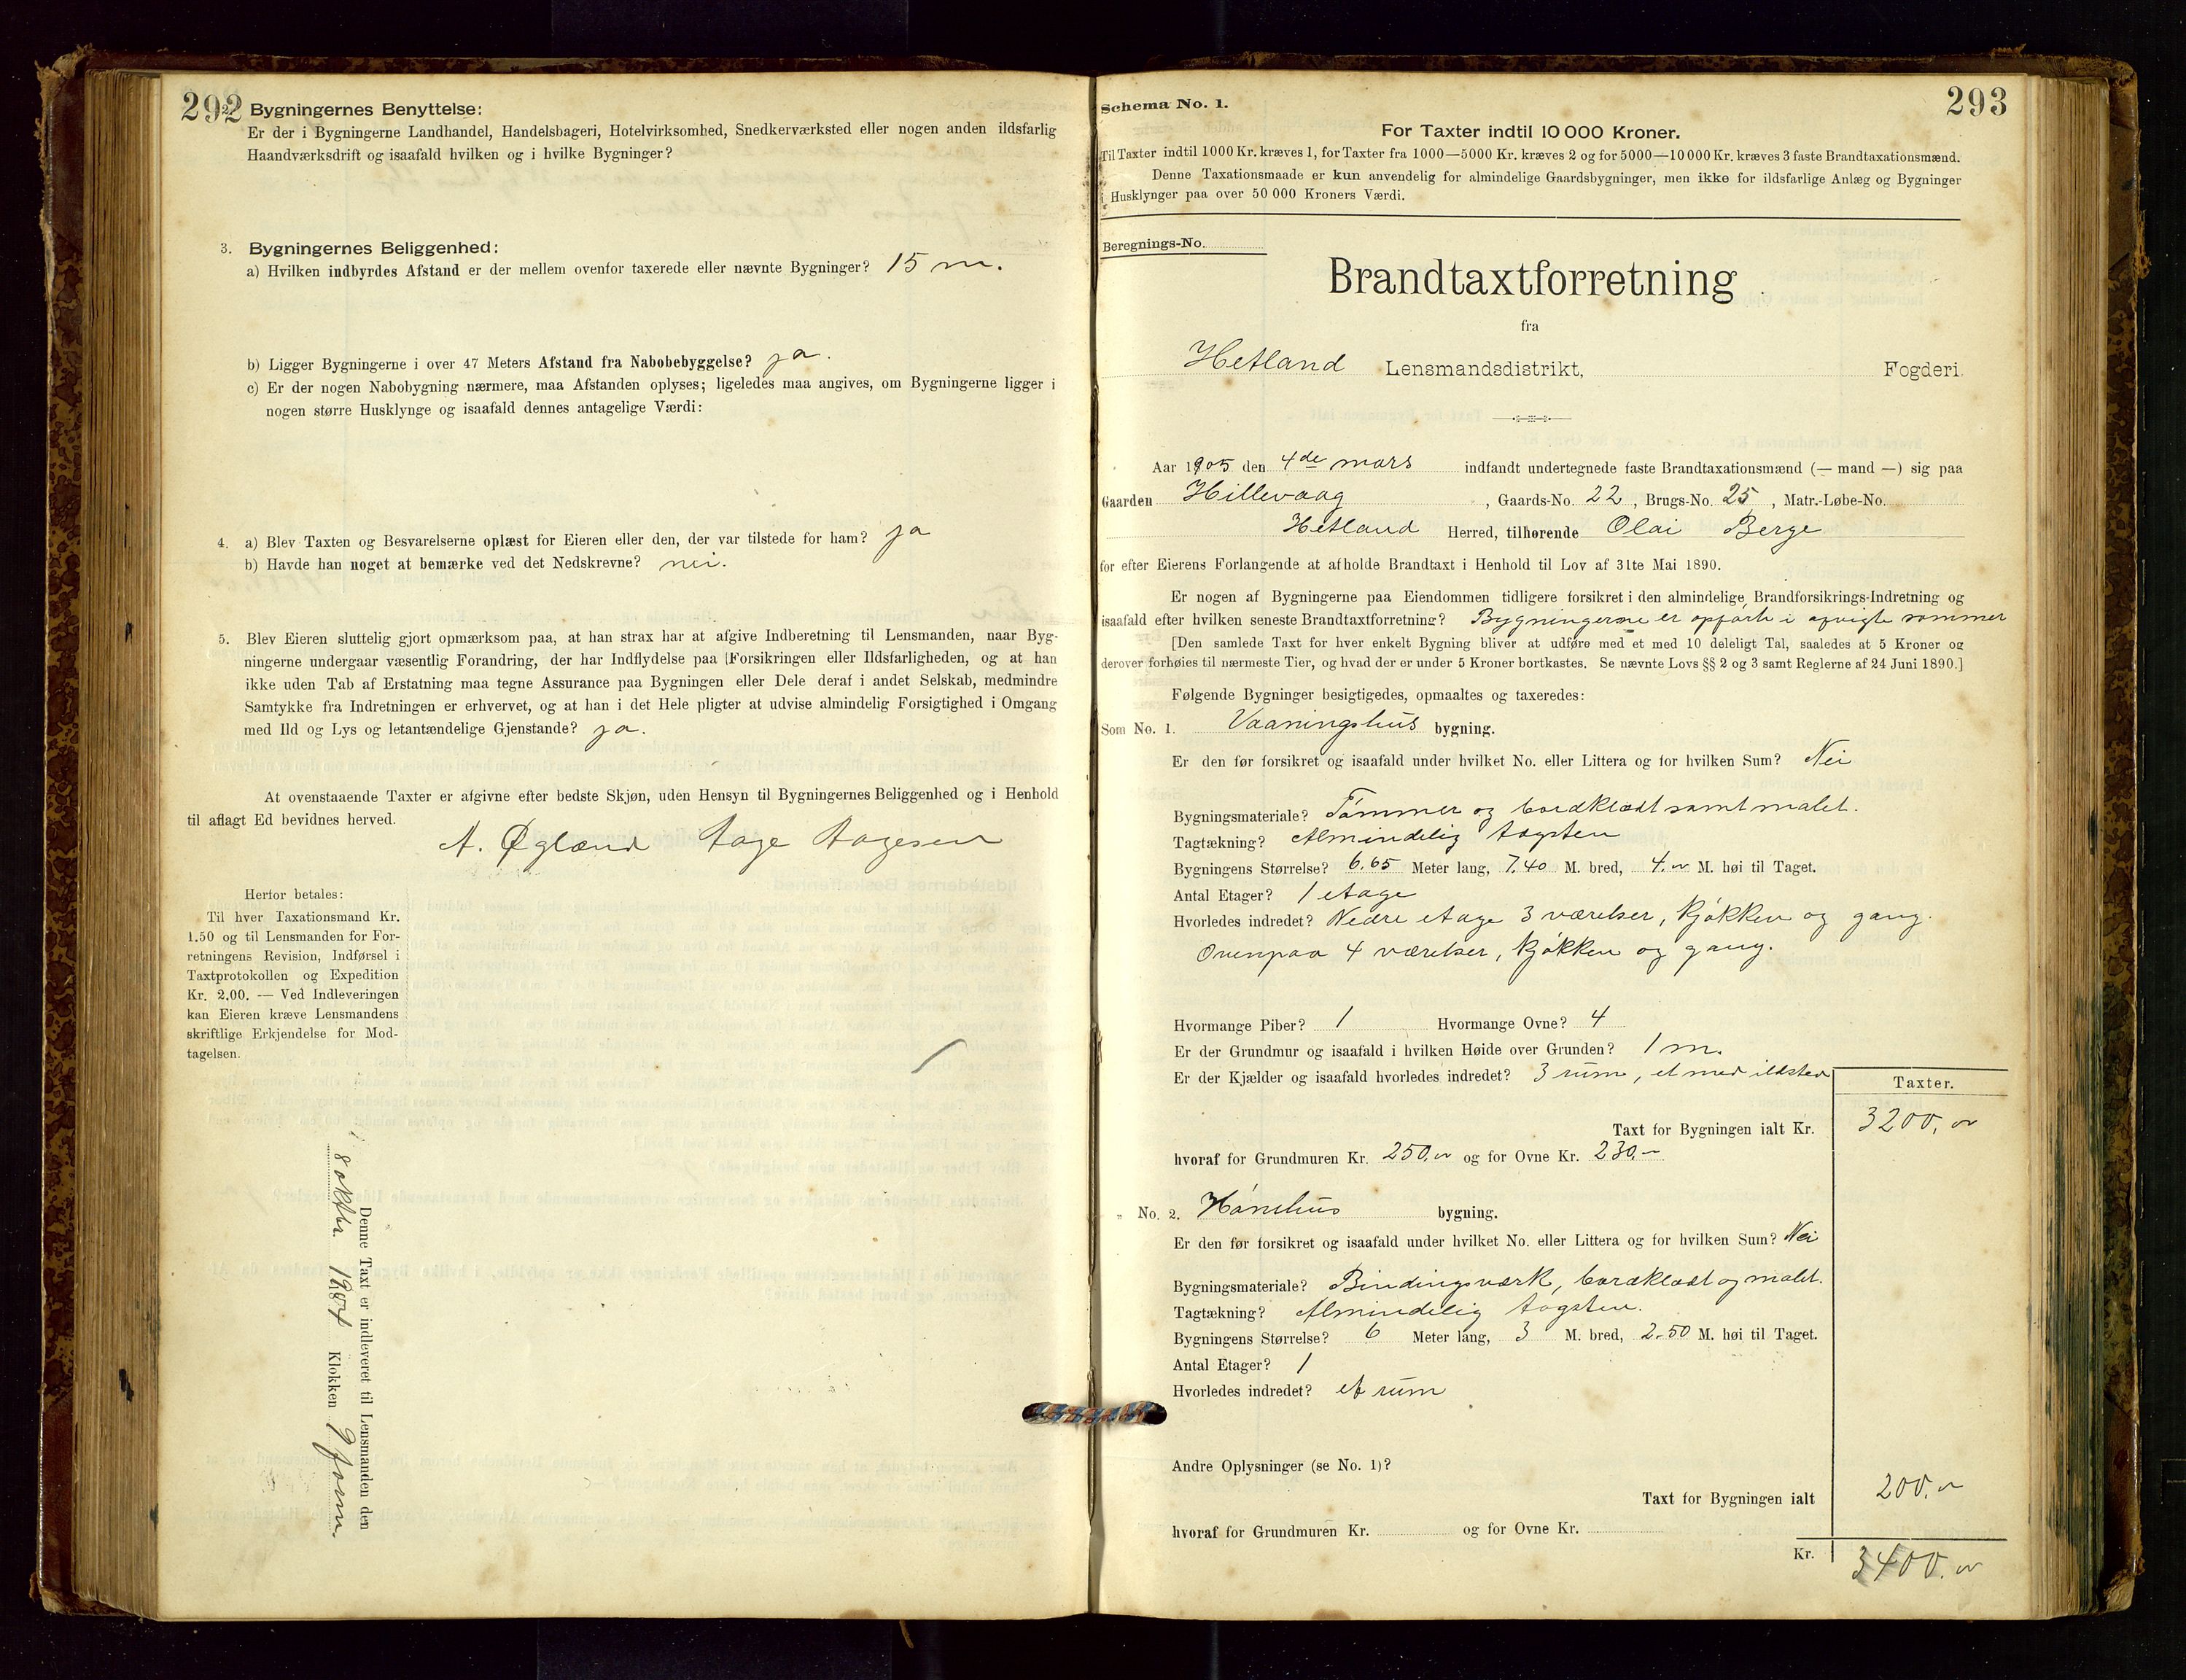 292
Bygningernes Benyttelse:
Er der i Bygningerne Landhandel, Handelsbageri, Hotelvirksomhed, Snedkerværksted eller nogen anden ildsfarlig
Haandværksdrift og isaafald hvilken og i hvilke Bygninger?
3. Bygningernes Beliggenhed:
a) Hvilken indbyrdes Afstand er der mellem ovenfor taxerede eller nævnte Bygninger? 15 m.
b) Ligger Bygningerne i over 47 Meters Afstand fra Nabobebyggelse? ja.
c) Er der nogen Nabobygning nærmere, maa Afstanden oplyses; ligeledes maa angives, om Bygningerne ligger i
nogen større Husklynge og isaafald dennes antagelige Værdi:
4. a) Blev Taxten og Besvarelserne oplæst for Eieren eller den, der var tilstede for ham? ja
b) Havde han noget at bemærke ved det Nedskrevne? nei.
5. Blev Eieren sluttelig gjort opmærksom paa, at han strax har at afgive Indberetning til Lensmanden, naar Byg-
ningerne undergaar væsentlig Forandring, der har Indflydelse paa Forsikringen eller Ildsfarligheden, og at han
ikke uden Tab af Erstatning maa tegne Assurance paa Bygningen eller Dele deraf i andet Selskab, medmindre
Samtykke fra Indretningen er erhvervet, og at han i det Hele pligter at udvise almindelig Forsigtighed i Omgang
med Ild og Lys og letantændelige Gjenstande? ja.
At ovenstaaende Taxter er afgivne efter bedste Skjøn, uden Hensyn til Bygningernes Beliggenhed og i Henhold
til aflagt Ed bevidnes herved.
A. Øglænd Aage Aagesen
Herfor betales:
Til hver Taxationsmand Kr.
1.50 og til Lensmanden for For-
retningens Revision, Indførsel i
Taxtprotokollen og Expedition
Kr. 2.00. — Ved Indleveringen
kan Eieren kræve Lensmandens
skriftlige Erkjendelse for Mod-
tagelsen.
Denne Taxt er indleveret til Lensmanden den
8 oktbr. 1904 Klokken 9 form.
293
Schema No. 1.
For Taxter indtil 10 000 Kroner.
Til Taxter indtil 1000 Kr. kræves 1, for Taxter fra 1000—5000 Kr. kræves 2 og for 5000—10 000 Kr. kræves 3 faste Brandtaxationsmænd.
Denne Taxationsmaade er kun anvendelig for almindelige Gaardsbygninger, men ikke for ildsfarlige Anlæg og Bygninger
i Husklynger paa over 50 000 Kroners Værdi.
Beregnings-No.
Brandtaxtforretning
fra
Hetland Lensmandsdistrikt, Fogderi
Aar 1905 den 4de mars indfandt undertegnede faste Brandtaxationsmænd (— mand —) sig paa
Gaarden Hillevaag, Gaards-No. 22, Brugs-No. 25, Matr.-Løbe-No.
Hetland Herred, tilhørende Olai Berge
for efter Eierens Forlangende at afholde Brandtaxt i Henhold til Lov af 31te Mai 1890.
Er nogen af Bygningerne paa Eiendommen tidligere forsikret i den almindelige Brandforsikrings-Indretning og
isaafald efter hvilken seneste Brandtaxtforretning? Bygningerne er opført i afvigte sommer
[Den samlede Taxt for hver enkelt Bygning bliver at udføre med et med 10 deleligt Tal, saaledes at 5 Kroner og
derover forhøies til nærmeste Tier, og hvad der er under 5 Kroner bortkastes. Se nævnte Lovs §§ 2 og 3 samt Reglerne af 24 Juni 1890.]
Følgende Bygninger besigtigedes, opmaaltes og taxeredes:
Som No. 1. Vaaningshus bygning.
Er den før forsikret og isaafald under hvilket No. eller Littera og for hvilken Sum? Nei
Bygningsmateriale? Tømmer og bordklædt samt malet.
Tagtækning? Almindelig tagsten
Bygningens Størrelse? 6.65 Meter lang, 7.40 M. bred, 4.– M. høi til Taget.
Antal Etager? 1 etage
Hvorledes indredet? Nedre etage 3 værelser, kjøkken og gang.
Ovenpaa 4 værelser, kjøkken og gang.
Hvormange Piber? 1 Hvormange Ovne? 4
Er der Grundmur og isaafald i hvilken Høide over Grunden? 1 m.
Er der Kjælder og isaafald hvorledes indredet? 3 rum, et med ildsted
Taxter.
Taxt for Bygningen ialt Kr. 3200.–
hvoraf for Grundmuren Kr. 250.– og for Ovne Kr. 230.–
" No. 2. Hønsehus bygning.
Er den før forsikret og isaafald under hvilket No. eller Littera og for hvilken Sum? Nei
Bygningsmateriale? Bindingsværk, bordklædt og malet.
Tagtækning? Almindelig tagsten.
Bygningens Størrelse? 6 Meter lang, 3 M. bred, 2.50 M. høi til Taget.
Antal Etager? 1
Hvorledes indredet? et rum
Andre Oplysninger (se No. 1)?
Taxt for Bygningen ialt 200.–
hvoraf for Grundmuren Kr. og for Ovne Kr.
Kr. 3400.–